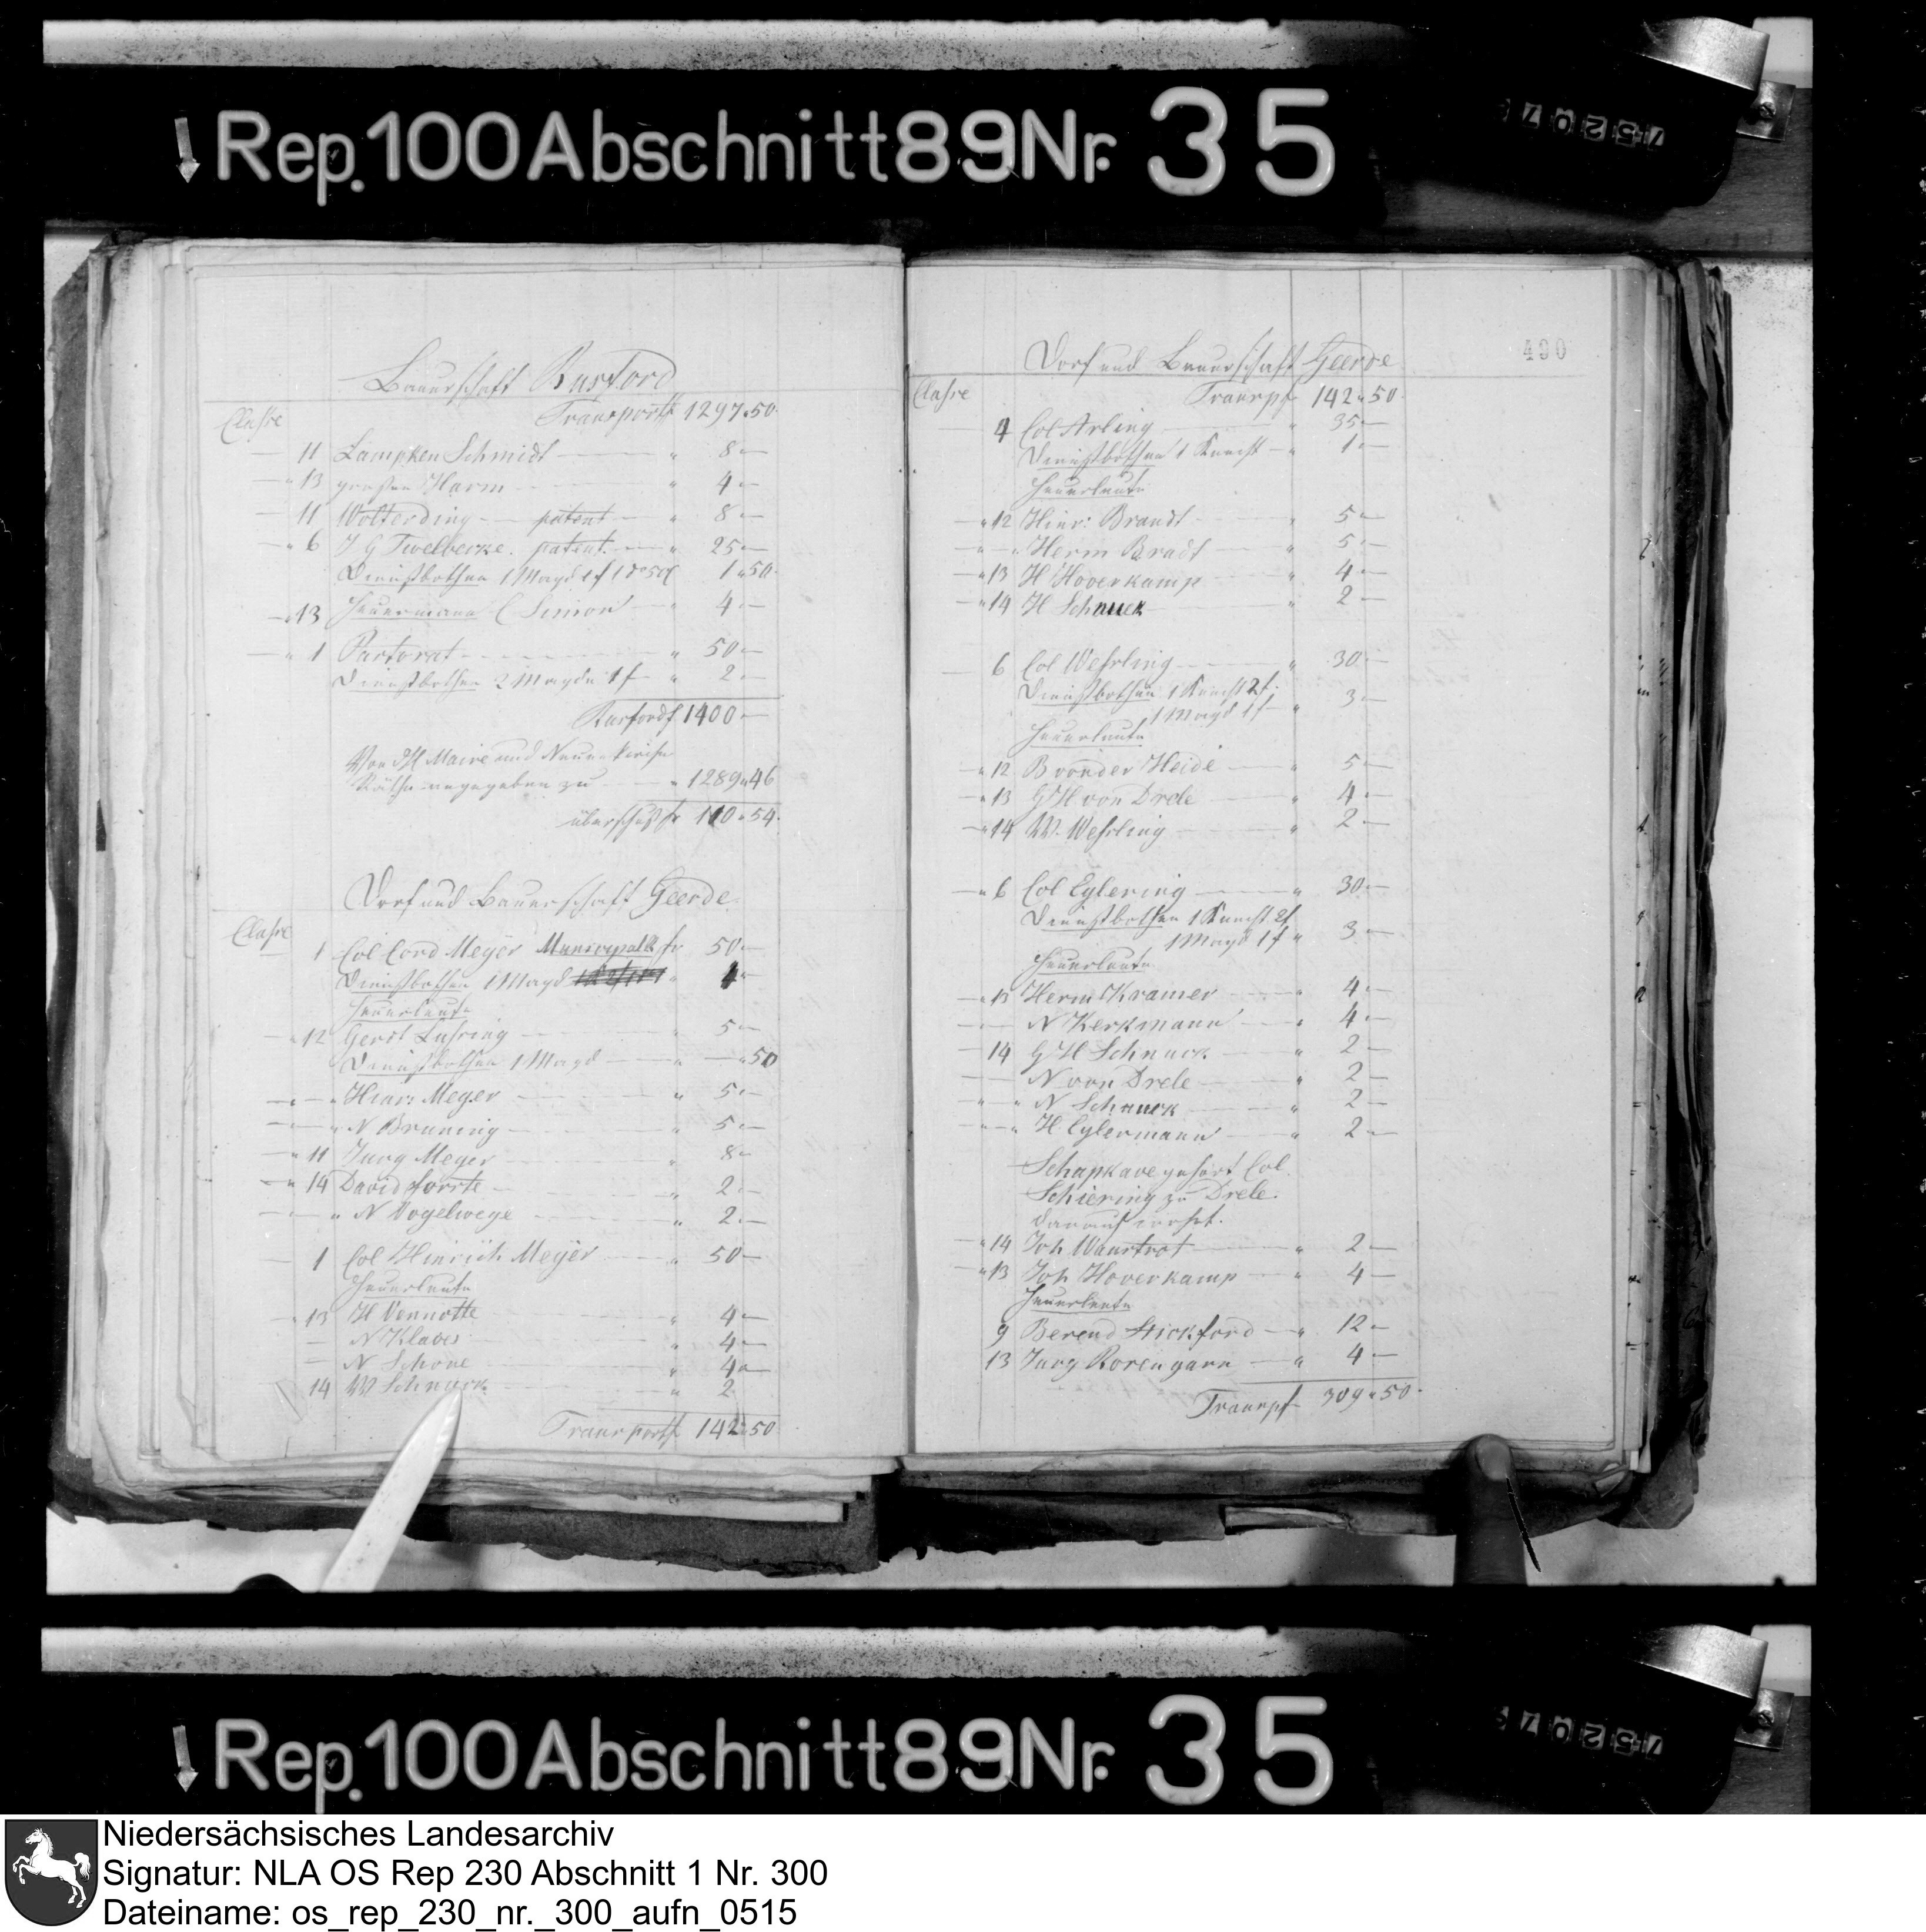 Rep. 100 Abschnitt 89 Nr. 35
Bauerschaft Rusford
Classe
Transport fr 1297 " 50
11 Lampken Schmidt " 8 "
" 13 grosse Harm " 4 "
11 Wolterding patent " 8 "
" 6 J G Twelbecke. patent. " 25 "
Dienstbothen 1 Magd 1 f 1 do 50 1 " 50
" 13 Heuermann C Simon " 4 "
" 1 Pastorat " 50 "
Dienstbothen 2 Mägde 1 f " 2 "
Rusford f 1400
Von H Maire und
Räthe angegeben zu " 1289 " 46
überschuß fr 110 " 54
Dorf und Bauerschaft Geerde
Classe
1 Col Cord Meyer Municipalr fr 50
Dienstbothen 1 Magd " 1
Heuerleute
12 Gerdt Luhring 5
Dienstbothen 1 Magd " 50
" Hinr: Meyer " 5
" N Bruning " 5
" 11 Jurg Meyer " 8
" 14 David " 2
" N Vogelwege " 2
1 Col Hinrich Meyer " 50
Heuerleute
13 H Vennotte " 4
N Klaves " 4
N Schone " 4
14 W Schnuck " 2
Transport f 142 " 50
490
Dorf und Bauerschaft Geerde
Classe
Transp f 142 " 50
4 Col Arling " 35
Dienstbothen 1 Knecht " 1
Heuerleute
" 12 Hinr: Brandt " 5
" Herm Bradt " 5
" 13 H Hoverkamp " 4
" 14 H Schnuck " 2
6 Col Wehrling " 30
Dienstbothen 1 Knecht 2 f
1 Magd 1 f " 3
Heuerleute
" 12 B von der Heide " 5
" 13 G H von Drele " 4
" 14 W. Wehrling " 2
" 6 Col Eylering " 30
Dienstbothen 1 Knecht 2 f
1 Magd 1 f " 3
Heuerleute
" 13 Herm Kramer " 4
N Kerkmann " 4
14 G H Schnuck " 2
N von Drele " 2
" " N Schnuck " 2
" H Eylermann " 2
Schapkave gehört Col.
Schiering zu Drele.
darauf wohnt.
" 14 Joh Wanstrot " 2
" 13 Joh Hoverkamp " 4
Heuerleute
9 Berend Stickford " 12
13 Jurg Rosengarn " 4
Transp f 309 " 50
Rep. 100 Abschnitt 89 Nr. 35
Niedersächsisches Landesarchiv
Signatur: NLA OS Rep 230 Abschnitt 1 Nr. 300
Dateiname: os_rep_230_nr._300_aufn_0515